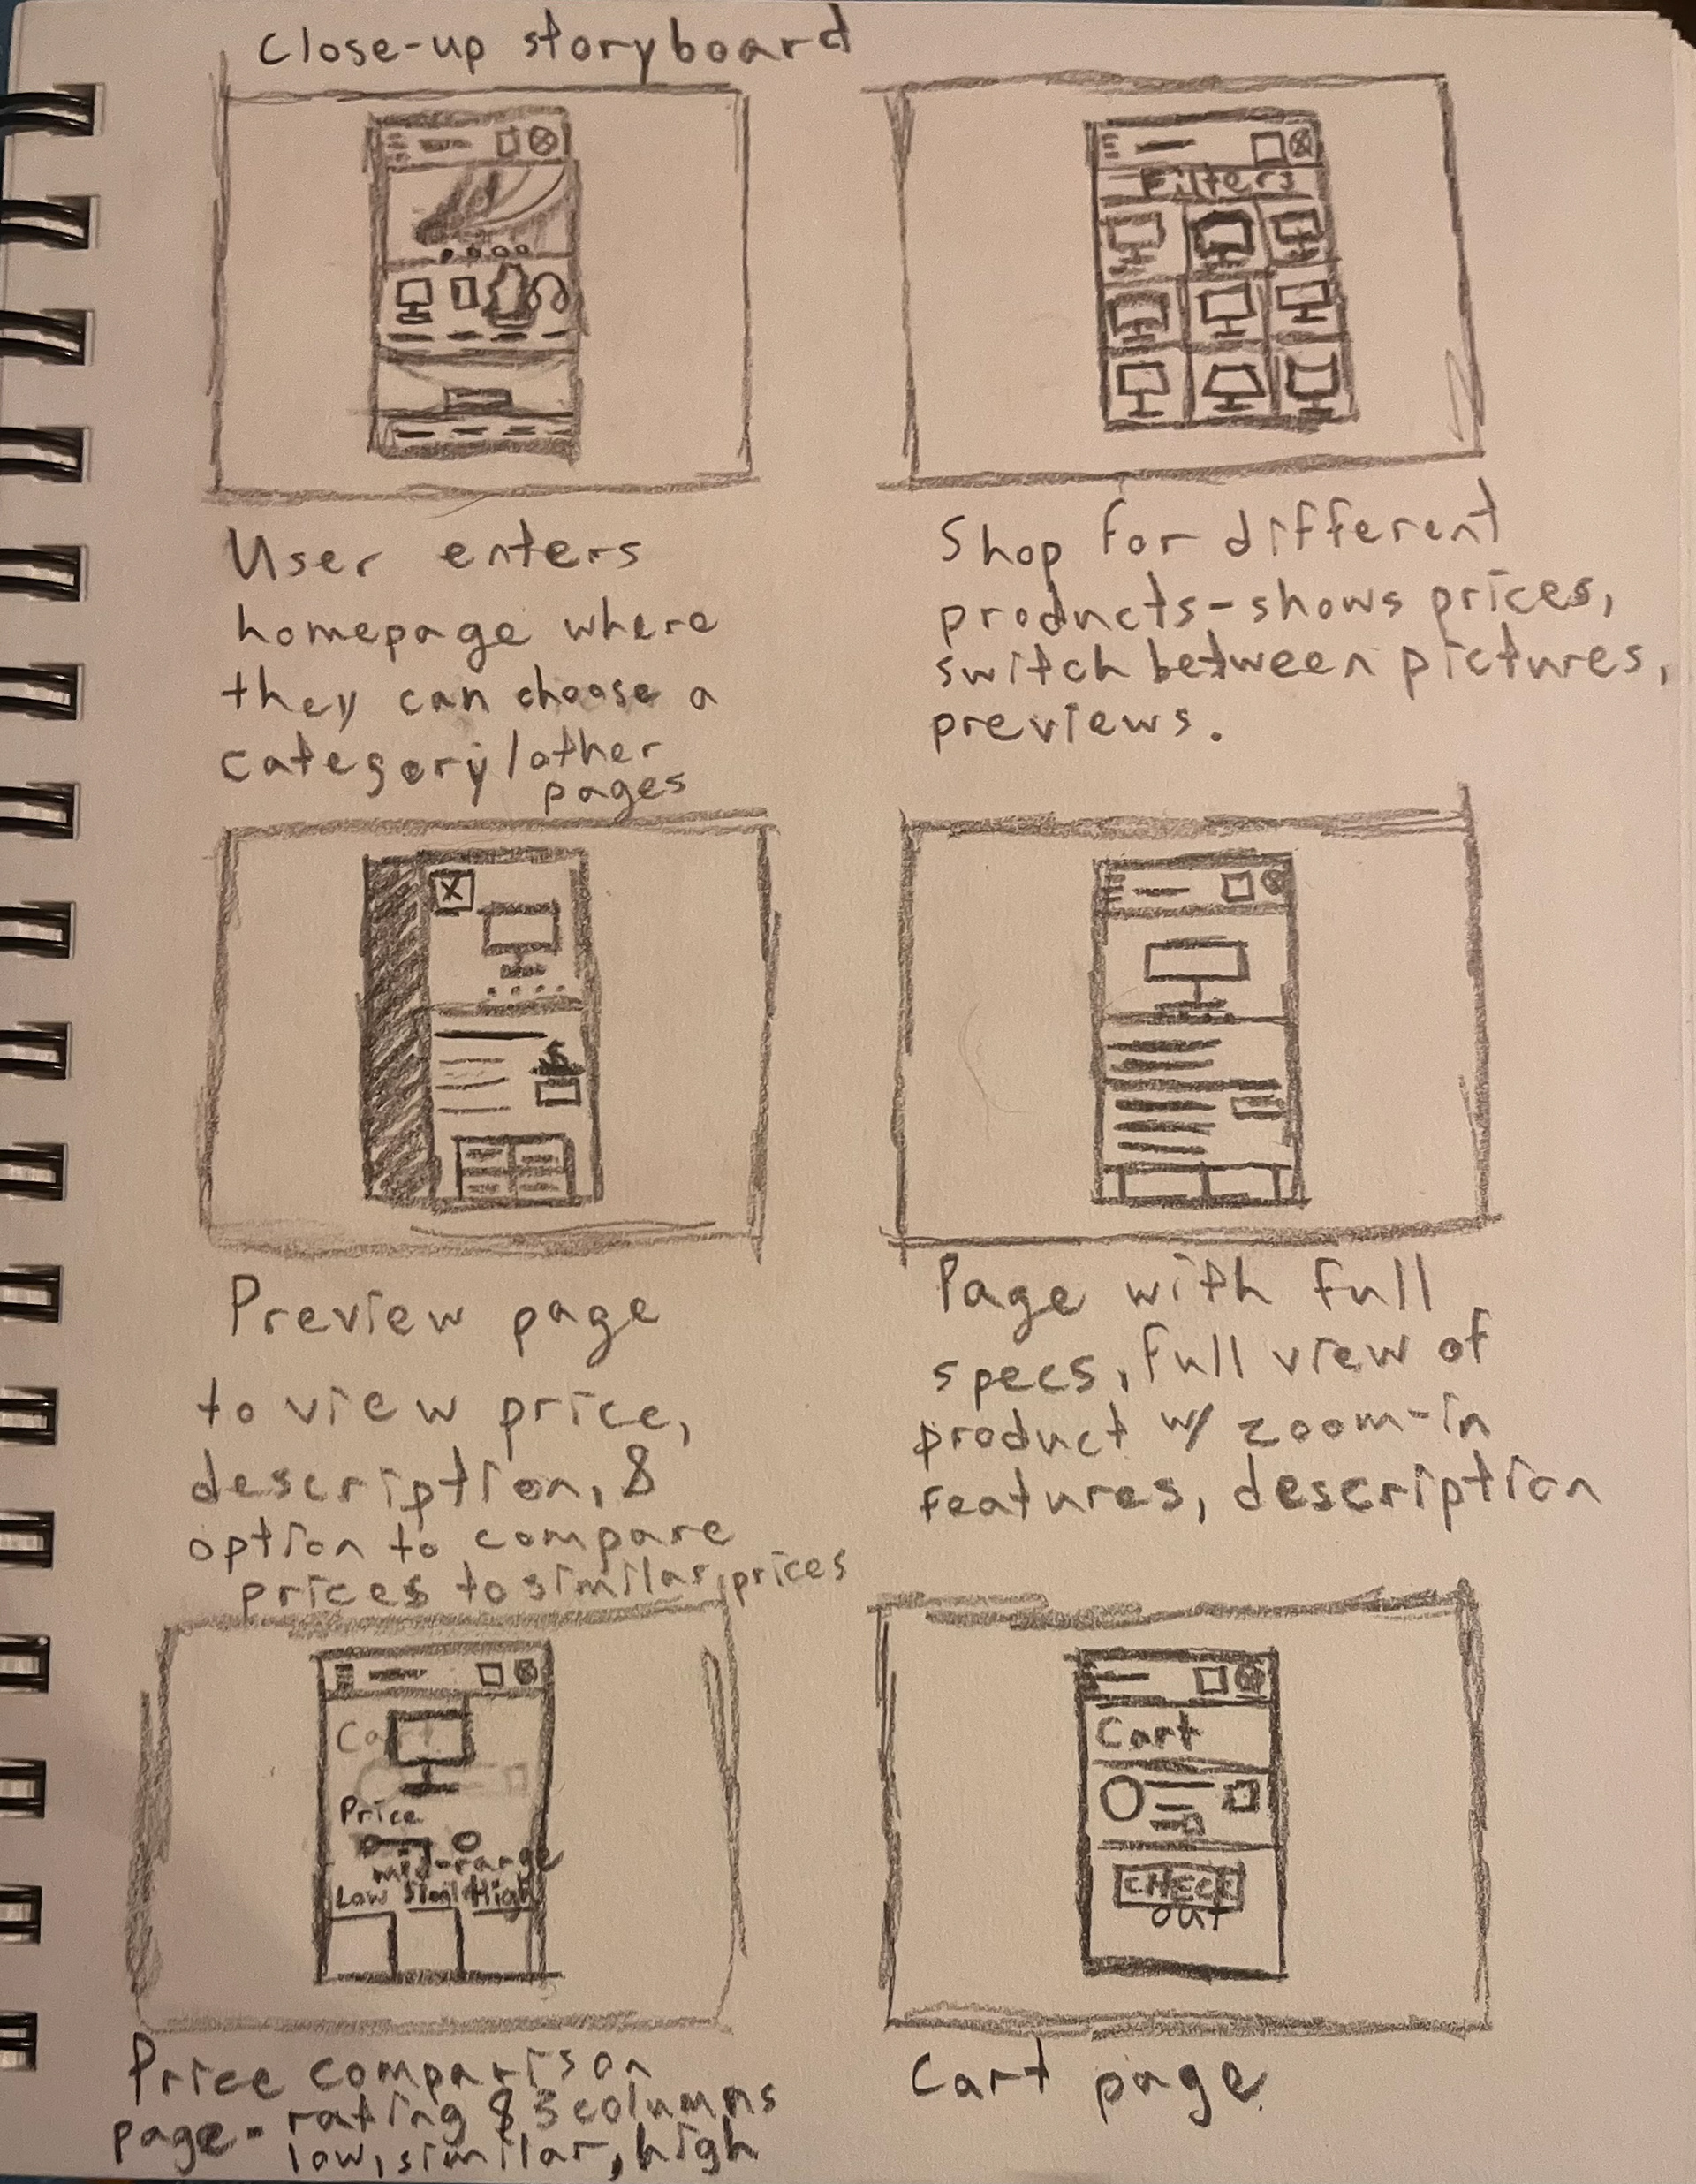 Close-up storyboard
User enters
homepage where
they can choose a
category/other
pages
Filters
Shop for different
products-shows prices,
switch between pictures,
previews.
X
$
Preview page
to view price,
description, &
option to compare
prices to similar prices
Page with full
specs, full view of
product w/ zoom-in
features, description
Price
mid-range
Low High
Price comparison
page- rating & 3 columns
low, similar, high
Cart
CHECK
out
Cart page